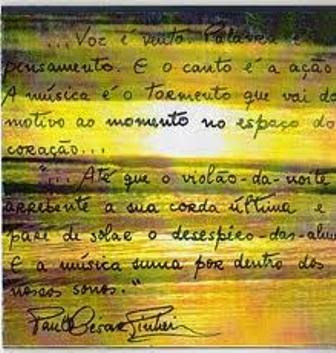 ...Voz é vento. Palavra é
pensamento. E o canto é a ação
A música é o tormento que vai do
motivo ao momento no espaço do
coração...
"... Até que o violão-da-noite
arrebente a sua corda última e
pare de solar o desespéro-das-alm
E a música suma por dentro dos
nossos sonos."
Paulo César Pinheiro